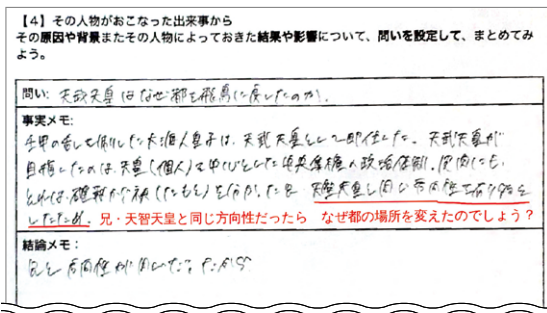 【4】その人物がおこなった出来事から
その原因や背景またその人物によっておきた結果や影響について、問いを設定して、まとめてみ
よう。
問い: 天武天皇はなぜ都を飛鳥に戻したのか。
事実メモ:
壬申の乱を制した大海人皇子は、天武天皇として即位した。天武天皇が
目指したのは、天皇(個人)を中心とした中央集権の政治体制。皮肉にも
それは、袂(たもと)を分かった兄・天智天皇と同じ方向性
したため。兄・天智天皇と同じ方向性だったら なぜ都の場所を変えたのでしょう?
結論メモ:
兄と方向性が同じ だから